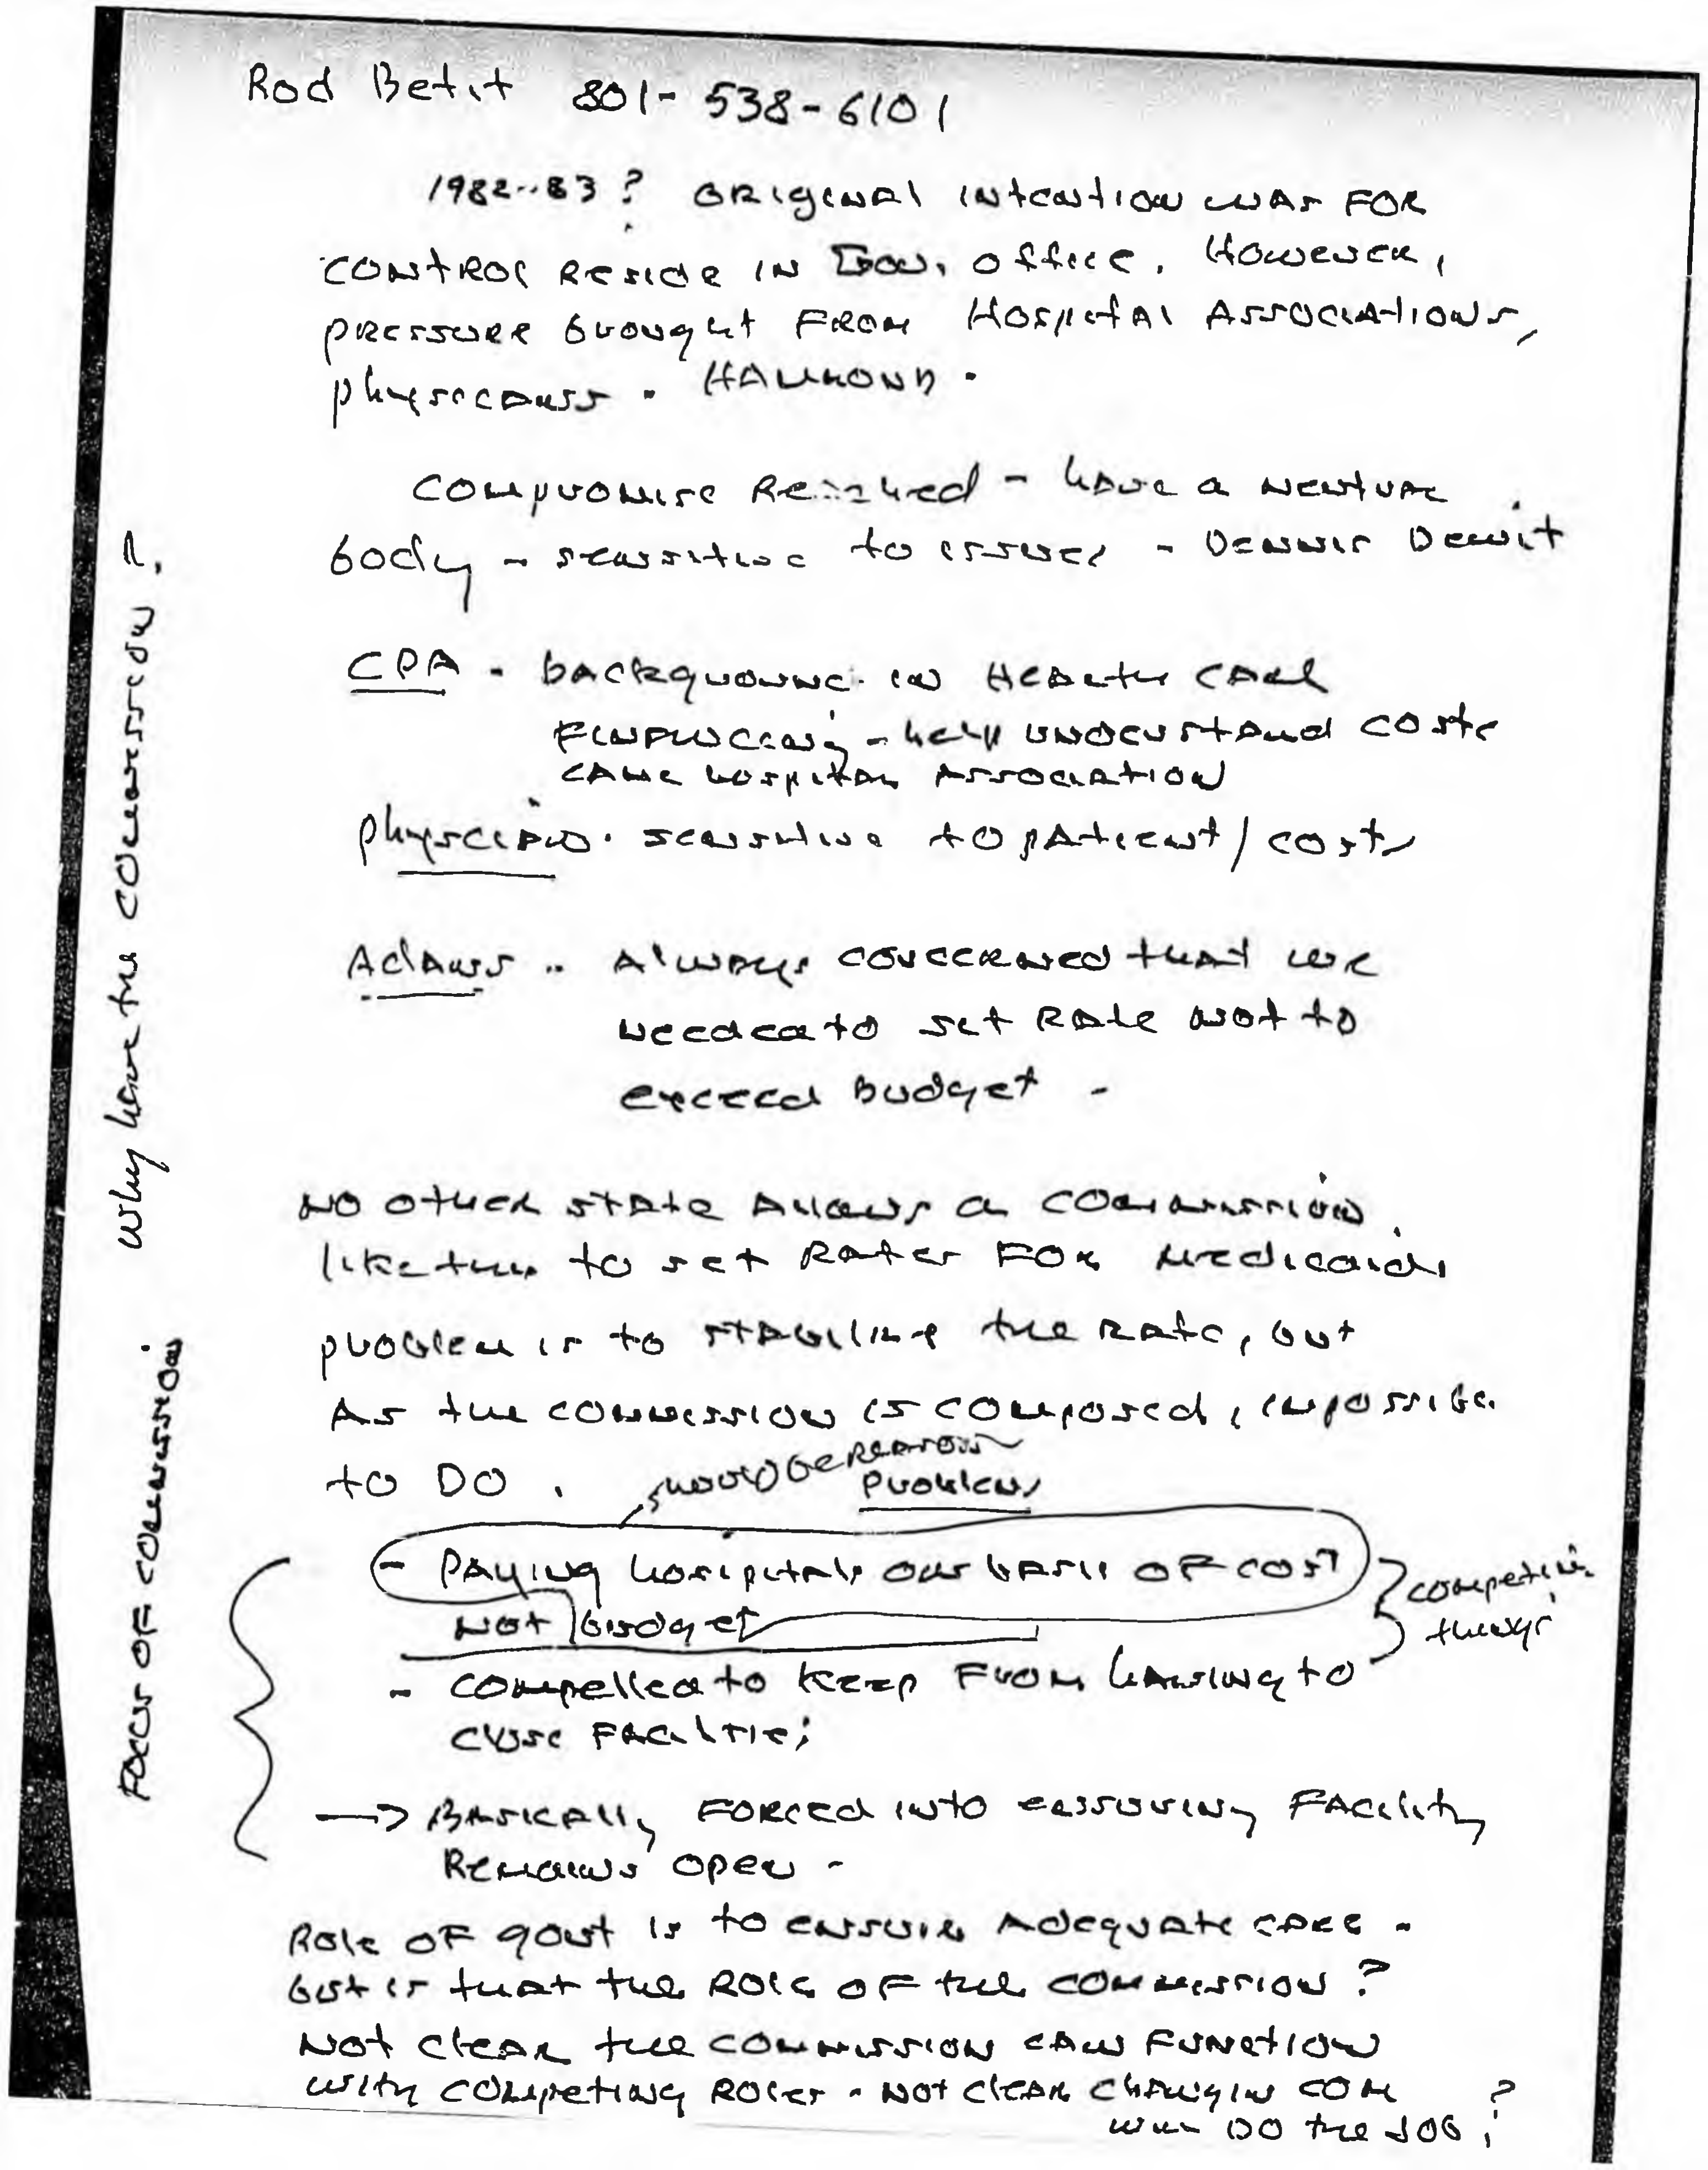 Rod Betit 801-538-6101
1982-83? ORiginal intention was FOR
CONTROL Reside IN Gov. office. However,
pressure brought FROM Hospital Associations,
physicians. HAMMOND.
Compromise Reached - have a neutral
body - sensitive to issues - Dennis Dewit
CPA - background in Health Care
Financing - help understand costs
CAME hospital Association
physician. sensitive to patient/costs
Adams .. Always concerned that we
needed to set Rate not to
exceed Budget -
NO other state Allows a commission
like this to set Rates FOR Medicaid,
problem is to stabilize the Rate, but
As the commission is composed, impossible
to DO.
should be reason
Problems
- PAYING hospitals on basis OF COST
NOT budget
competing
things
- Compelled to keep From having to
close Facilities
→ Basically FORCED into ensuring Facility
Remains open -
Role OF govt is to ensure Adequate care -
but is that the Role OF the commission?
Not clear the commission can Function
with competing Roles - Not clear change in COM
will DO the JOB?
Why have the commission?
Focus OF commission